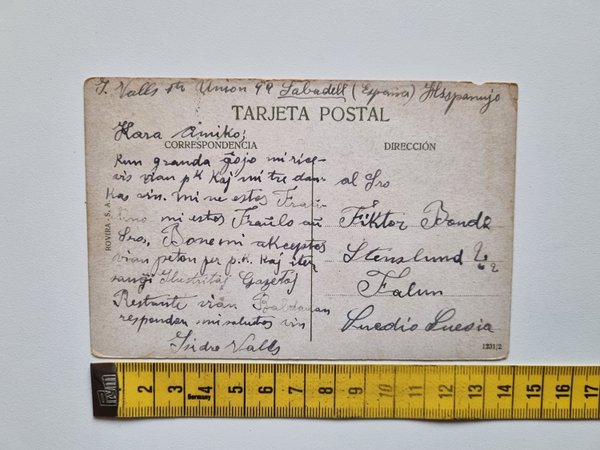 I. Valls str Union 99 Sabadell (España) Hispanujo
TARJETA POSTAL
CORRESPONDENCIA
DIRECCIÓN
Kara Amiko;
Kun granda ĝojo mi rice-
vis vian pk kaj mi tre dan-
kas vin. mi ne estas Fraŭ-
lino mi estas Fraŭlo aŭ
Sro, Bone mi akceptas
vian peton per p.k. kaj inter
sanĝi Ilustritaj Gazetaj
Restante vian Baldaŭan
respondon mi salutas vin
Isidro Valls
al Sro
Fiktor Bonde
Stenslund
Falun
Suedio Suecia
ROVIRA - S. A.
1231/2
1 2 3 4 5 6 7 8 9 10 11 12 13 14 15 16 17
Germany